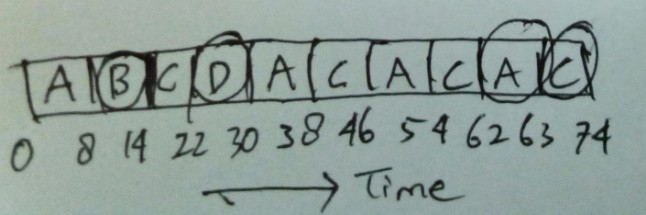 A B C D A C A C A C
0 8 14 22 30 38 46 54 62 63 74
→ Time